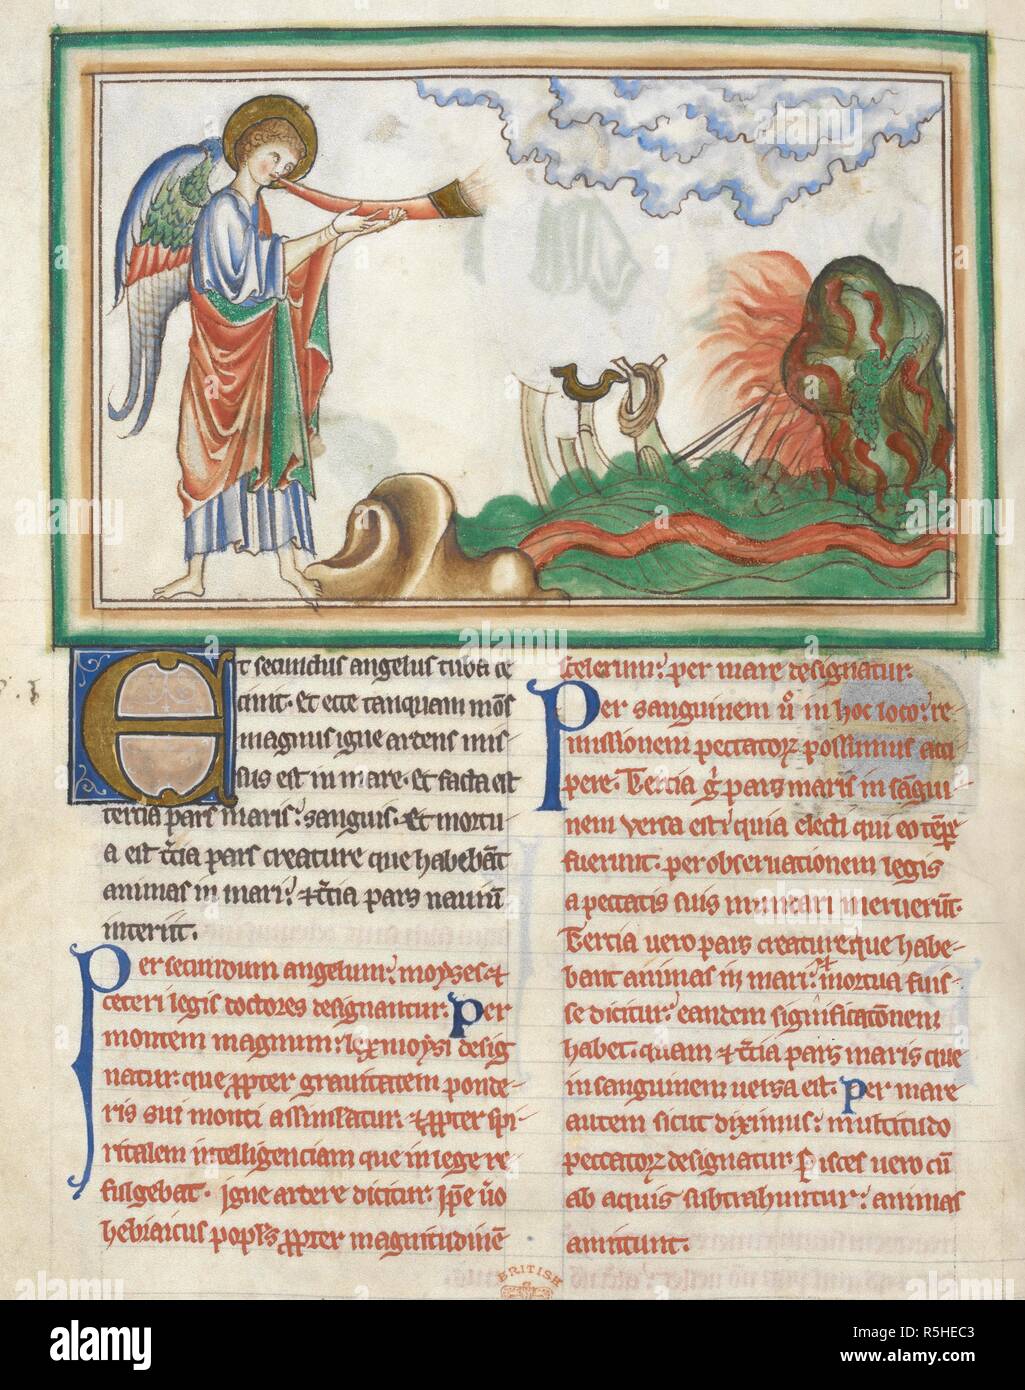 Et secundus angelus tuba ce
cinit. Et ecce tanquam mōs
magnus igne ardens mis
sus est in mare. et facta est
tercia pars maris: sanguis. Et mortu
a est t̄cia pars creature que habebāt
animas in mari: et t̄cia pars nauiū
interiit.
Per secundum angelum: moyses ⁊
ceteri legis doctores designantur. Per
montem magnum: lex moysi desig
natur. que ꝓpter grauitatem ponde-
ris sui monti assimilatur. ⁊ ꝓpter spi-
ritalem intelligenciam que in lege re
fulgebat. igne ardere dicitur. Ip̄e u̅o
hebraicus popl̅s ꝓpter magnitudinē
scelerum: per mare designatur.
Per sanguinem u̅ in hoc loco: re
missionem peccatoꝝ possimus acci
pere. Tercia g̅ pars maris in sāgui
nem versa est: quia electi qui eo tēpe
fuerunt. per obseruationem legis
a peccatis suis mundari meruerūt.
Tercia uero pars creature que habe-
bant animas in mari: mortua fuis-
se dicitur: eandem significatōnem
habet. quam ⁊ t̄cia pars maris que
in sanguinem uersa est. Per mare
autem sicut diximus: multitudo
peccatoꝝ designatur. Pisces uero cū
ab aquis subtrahuntur: animas
amittunt.
BRITISH
alamy
Image ID: R5HEC3
www.alamy.com